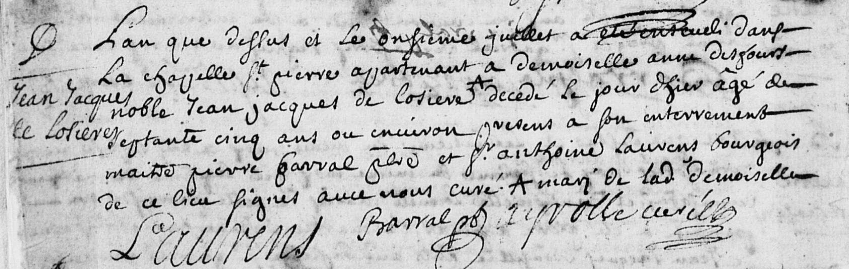 Jean Jacques
de Losieres
L'an que dessus et le onsieme juillet a esté enseveli dans
La chapelle st pierre apartenant a demoiselle anne desfours
noble Jean jacques de losiere decedé le jour d'hier âgé de
septante cinq ans ou enuiron presens a son enterrement
maitre pierre Barral pbre et sr anthoine Laurens bourgeois
de ce lieu signes auec nous curé. mary de lad. demoiselle
Laurens Barral pb ayrolle curé